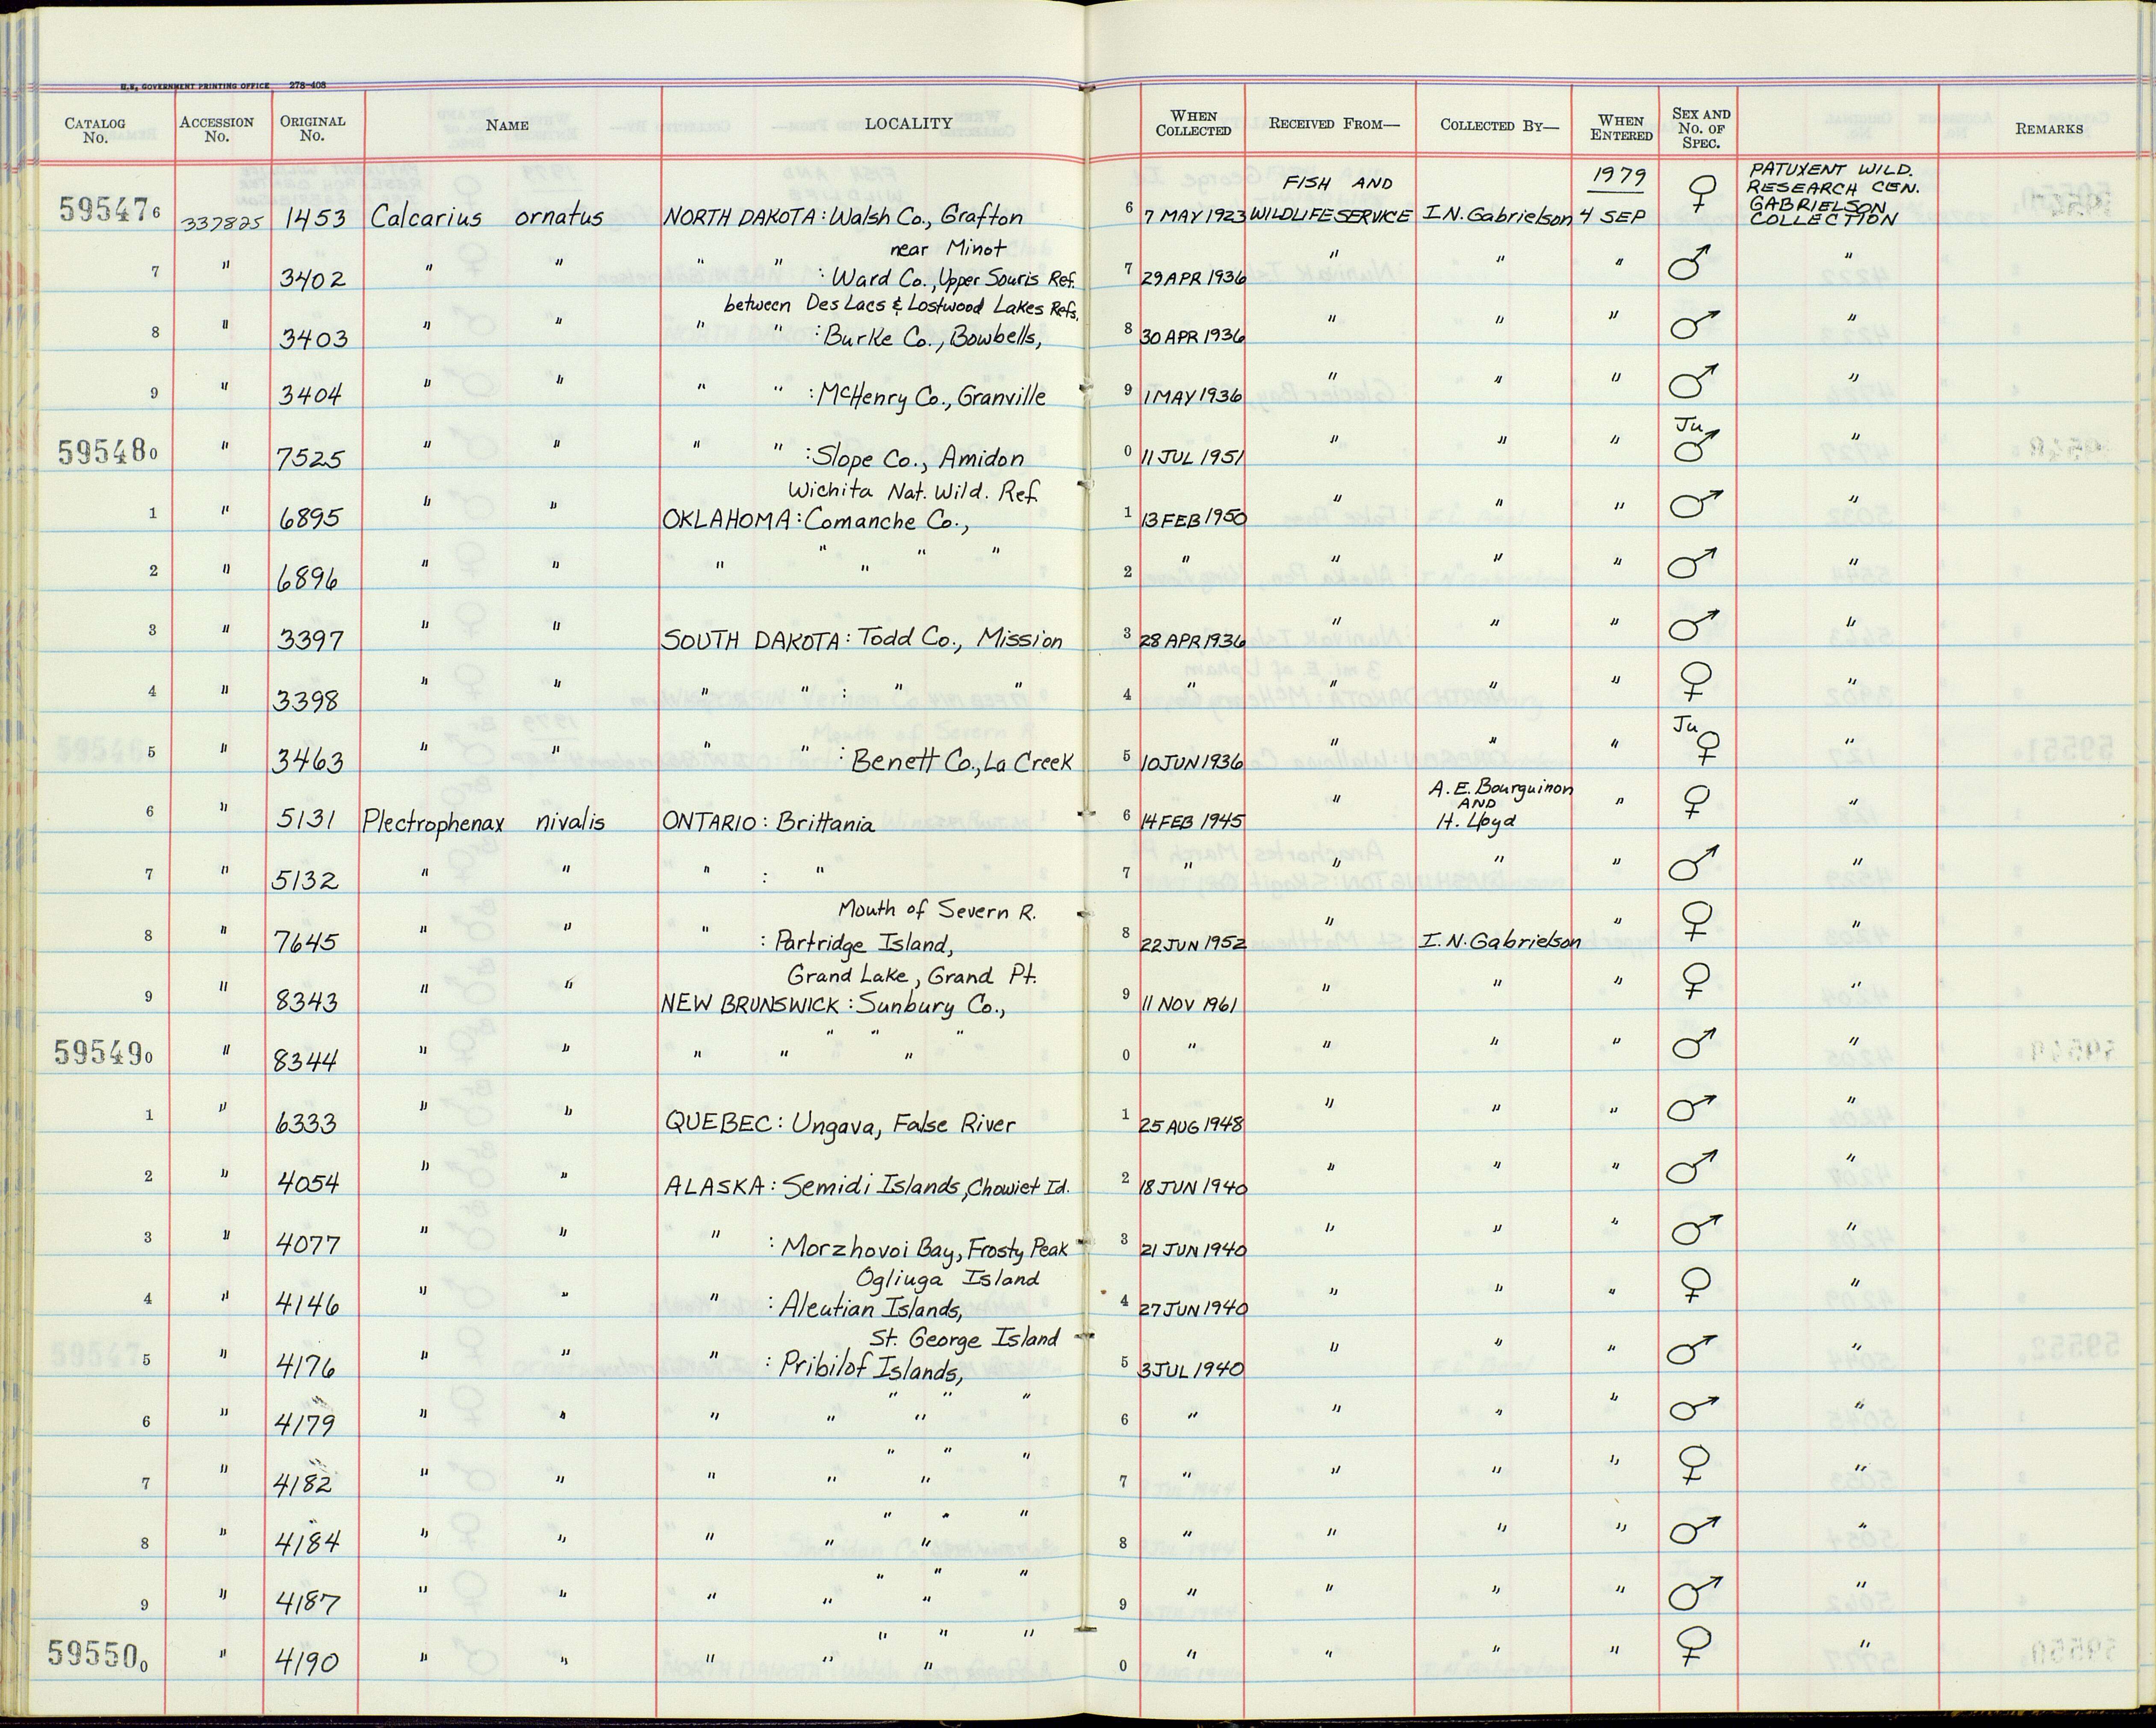 U.S. GOVERNMENT PRINTING OFFICE 278-408
CATALOG No. ACCESSION No. ORIGINAL No. NAME LOCALITY WHEN COLLECTED RECEIVED FROM— COLLECTED BY— WHEN ENTERED SEX AND No. OF SPEC. REMARKS
595476 337825 1453 Calcarius ornatus NORTH DAKOTA: Walsh Co., Grafton 6 7 MAY 1923 FISH AND WILDLIFE SERVICE I.N. Gabrielson 1979 4 SEP ♀ PATUXENT WILD. RESEARCH CEN. GABRIELSON COLLECTION
near Minot
7 " 3402 " " " " : Ward Co., Upper Souris Ref. 7 29 APR 1936 " " " ♂ "
between Des Lacs & Lostwood Lakes Refs.
8 " 3403 " " " " : Burke Co., Bowbells, 8 30 APR 1936 " " " ♂ "
9 " 3404 " " " " : McHenry Co., Granville 9 1 MAY 1936 " " " ♂ "
595480 " 7525 " " " " : Slope Co., Amidon 0 11 JUL 1951 " " " Ju ♂ "
Wichita Nat. Wild. Ref.
1 " 6895 " " OKLAHOMA: Comanche Co., 1 13 FEB 1950 " " " ♂ "
" " "
2 " 6896 " " " " 2 " " " " ♂ "
3 " 3397 " " SOUTH DAKOTA: Todd Co., Mission 3 28 APR 1936 " " " ♂ "
4 " 3398 " " " " : " " 4 " " " " ♀ "
5 " 3463 " " " " : Benett Co., La Creek 5 10 JUN 1936 " " " Ju ♀ "
6 " 5131 Plectrophenax nivalis ONTARIO: Brittania 6 14 FEB 1945 " A. E. Bourguinon AND H. Lloyd " ♀ "
7 " 5132 " " " : " 7 " " " " ♂ "
Mouth of Severn R.
8 " 7645 " " " : Partridge Island, 8 22 JUN 1952 " I. N. Gabrielson " ♀ "
Grand Lake, Grand Pt.
9 " 8343 " " NEW BRUNSWICK: Sunbury Co., 9 11 NOV 1961 " " " ♀ "
" " "
595490 " 8344 " " " " " 0 " " " " ♂ "
1 " 6333 " " QUEBEC: Ungava, False River 1 25 AUG 1948 " " " ♂ "
2 " 4054 " " ALASKA: Semidi Islands, Chowiet Id. 2 18 JUN 1940 " " " ♂ "
3 " 4077 " " " : Morzhovoi Bay, Frosty Peak 3 21 JUN 1940 " " " ♂ "
Ogliuga Island
4 " 4146 " " " : Aleutian Islands, 4 27 JUN 1940 " " " ♀ "
St. George Island
5 " 4176 " " " : Pribilof Islands, 5 3 JUL 1940 " " " ♂ "
" " "
6 " 4179 " " " " " 6 " " " " ♂ "
" " "
7 " 4182 " " " " " 7 " " " " ♀ "
" " "
8 " 4184 " " " " " 8 " " " " ♂ "
" " "
9 " 4187 " " " " " 9 " " " " ♂ "
" " "
595500 " 4190 " " " " " 0 " " " " ♀ "